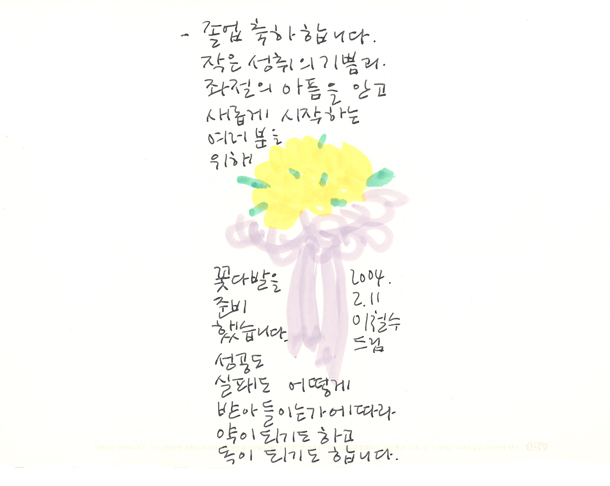 - 졸업 축하합니다.
작은 성취의 기쁨과
좌절의 아픔을 안고
새롭게 시작하는
여러분을
위해
꽃다발을
준비
했습니다.
2004.
2.11
이철수
드림
성공도
실패도 어떻게
받아들이는가에 따라
약이 되기도 하고
독이 되기도 합니다.